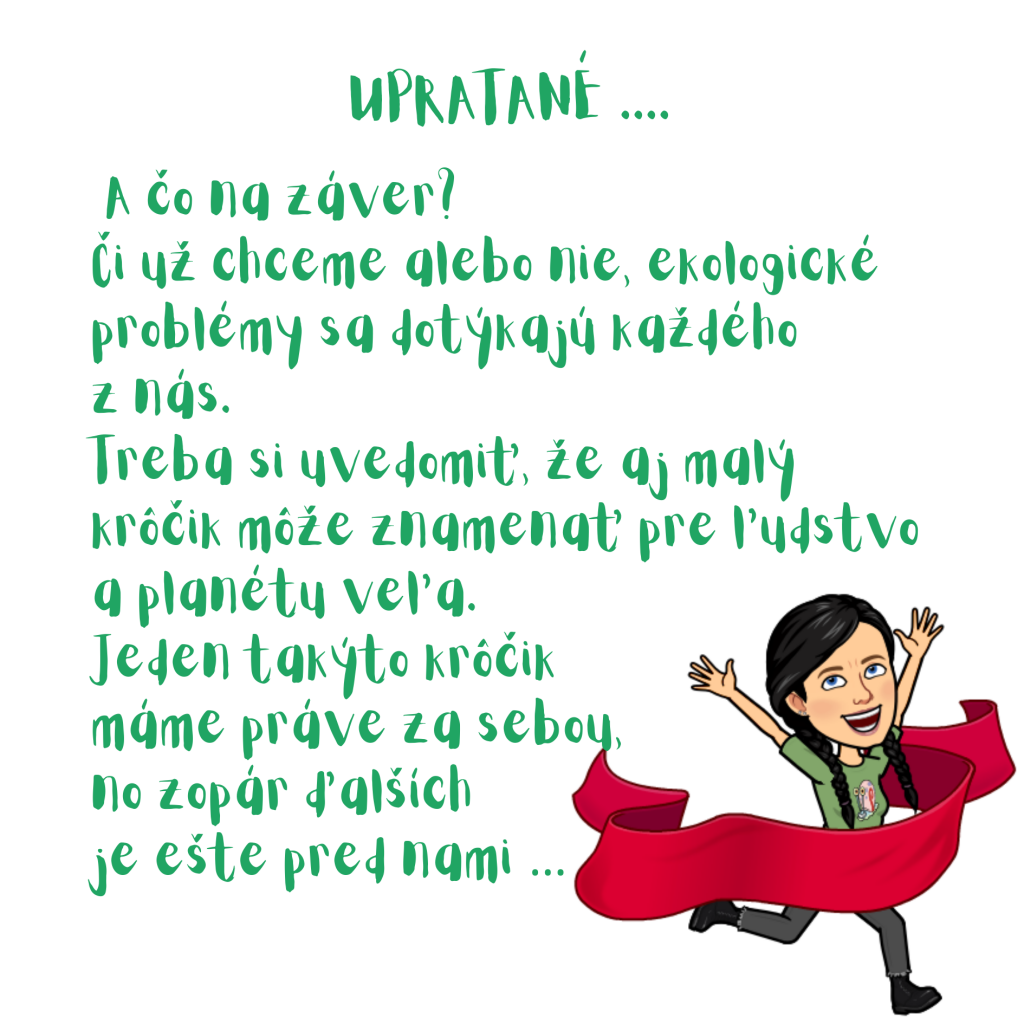 UPRATANÉ ....
A čo na záver?
Či už chceme alebo nie, ekologické
problémy sa dotýkajú každého
z nás.
Treba si uvedomiť, že aj malý
krôčik môže znamenať pre ľudstvo
a planétu veľa.
Jeden takýto krôčik
máme práve za sebou,
no zopár ďalších
je ešte pred nami ...